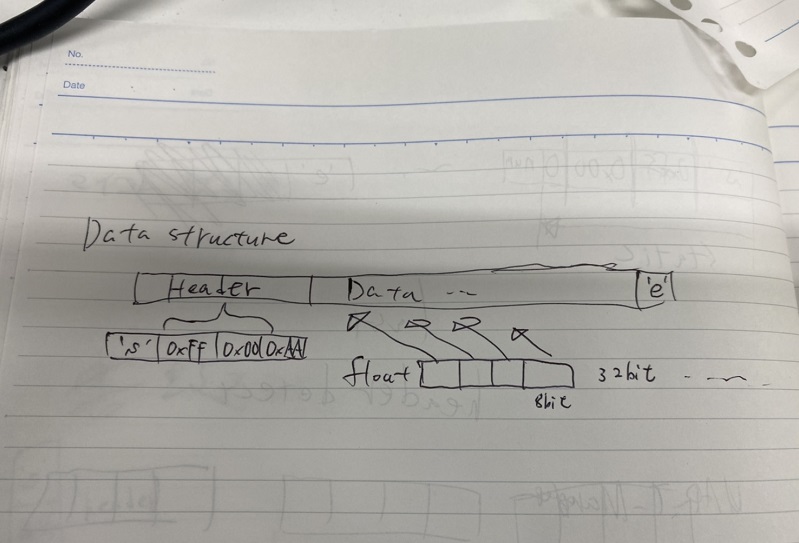 No.
Date
Data structure
Header Data ... 'e'
's' 0xFf 0x00 0xAA
float 32bit
8bit